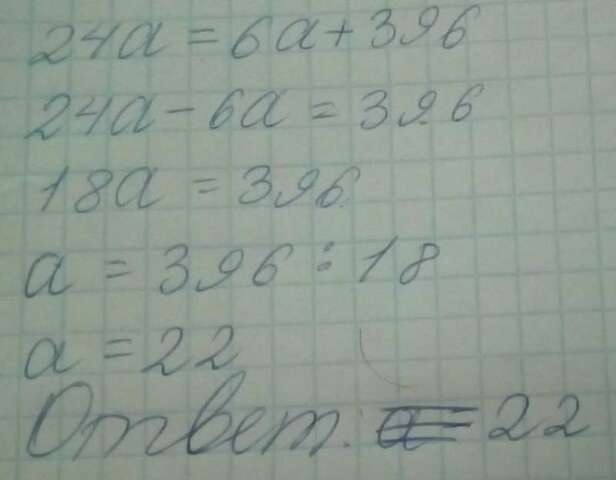 24a = 6a + 396
24a - 6a = 396
18a = 396
a = 396 : 18
a = 22
Ответ: 22